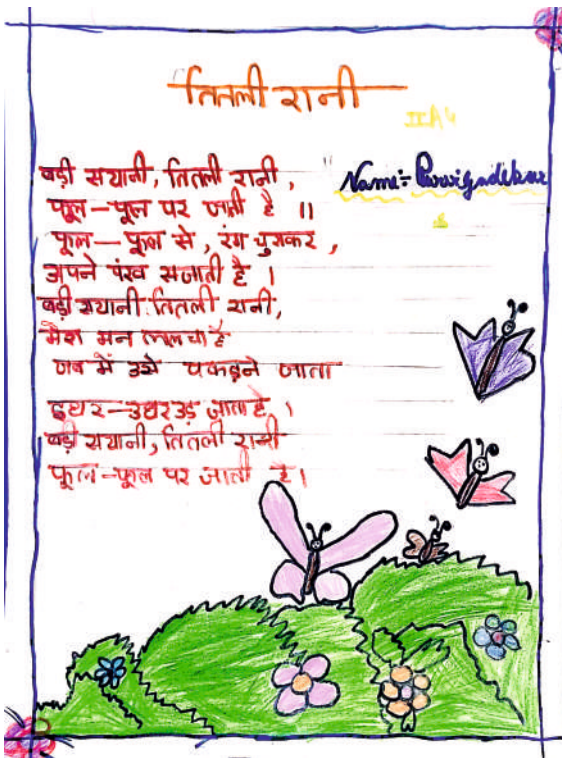 तितली रानी
IIA4
बड़ी सयानी, तितली रानी,
Name:-
फूल-फूल पर जाती है ॥
फूल-फूल से, रंग चुराकर,
अपने पंख सजाती है ।
बड़ी सयानी तितली रानी,
मेरा मन ललचा है
जब में उसे पकड़ने जाता
इधर-उधर उड़ जाता है ।
बड़ी सयानी, तितली रानी
फूल-फूल पर जाती है ।